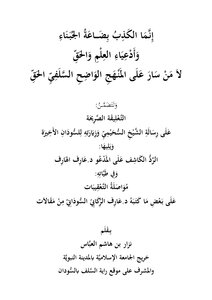 إِنَّمَا الكَذِبُ بِضَاعَةُ الجُبَنَاءِ
وَأَدْعِيَاءِ العِلْمِ وَالحَقِّ
لاَ مَنْ سَارَ عَلَى المَنْهَجِ الوَاضِحِ السَّلَفِيِّ الحَقِّ
وَتَتَضَمَّنُ:
التَّعْلِيقَةَ الصَّرِيحَةَ
عَلَى رِسَالَةِ الشَّيْخِ السُّحَيْمِيِّ وَزِيَارَتِهِ لِلسُّودَانِ الأَخِيرَةِ
وَيَلِيهَا:
الرَّدُّ الكَاشِفُ عَلَى المَدْعُو د.عَارِف الهَارِف
وَفِي طَيَّاتِهِ:
مُوَاصَلَةُ التَّعْقِيبَاتِ
عَلَى بَعْضِ مَا كَتَبَهُ د.عَارِف الرِّكَابِيُّ السُّودَانِيُّ مِنْ مَقَالَات
بقلم
نزار بن هاشم العبّاس
خريج الجامعة الإسلاميّة بالمدينة النبويّة
والمشرف على موقع راية السّلف بالسّودان